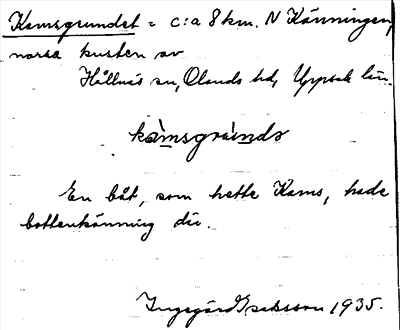 Kamsgrundet = c:a 8 km. N Känningen,
norra kusten av
Hållnäs sn, Olands hd, Uppsala län.
kàmsgrùnda
En båt, som hette Kams, hade
bottenkänning där.
Ingegärd Isaksson 1935.